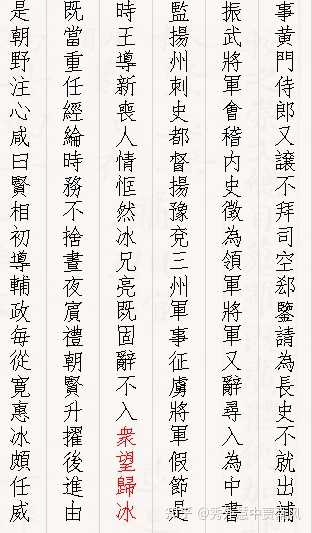 事黃門侍郎又讓不拜司空郄鑒請為長史不就出補
振武將軍會稽內史徵為領軍將軍又辭尋入為中書
監揚州刺史都督揚豫兗三州軍事征虜將軍假節是
時王導新喪人情恇然冰兄亮既固辭不入衆望歸冰
既當重任經綸時務不捨晝夜賓禮朝賢升擢後進由
是朝野注心咸曰賢相初導輔政每從寬惠冰頗任威
知乎